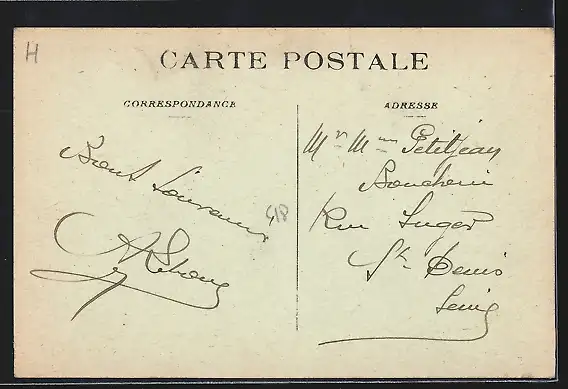 H
CARTE POSTALE
CORRESPONDANCE
ADRESSE
Mr Mme Petitjean
Boucherie
Rue Suger
St Denis
Seine
Bons Souvenirs
418